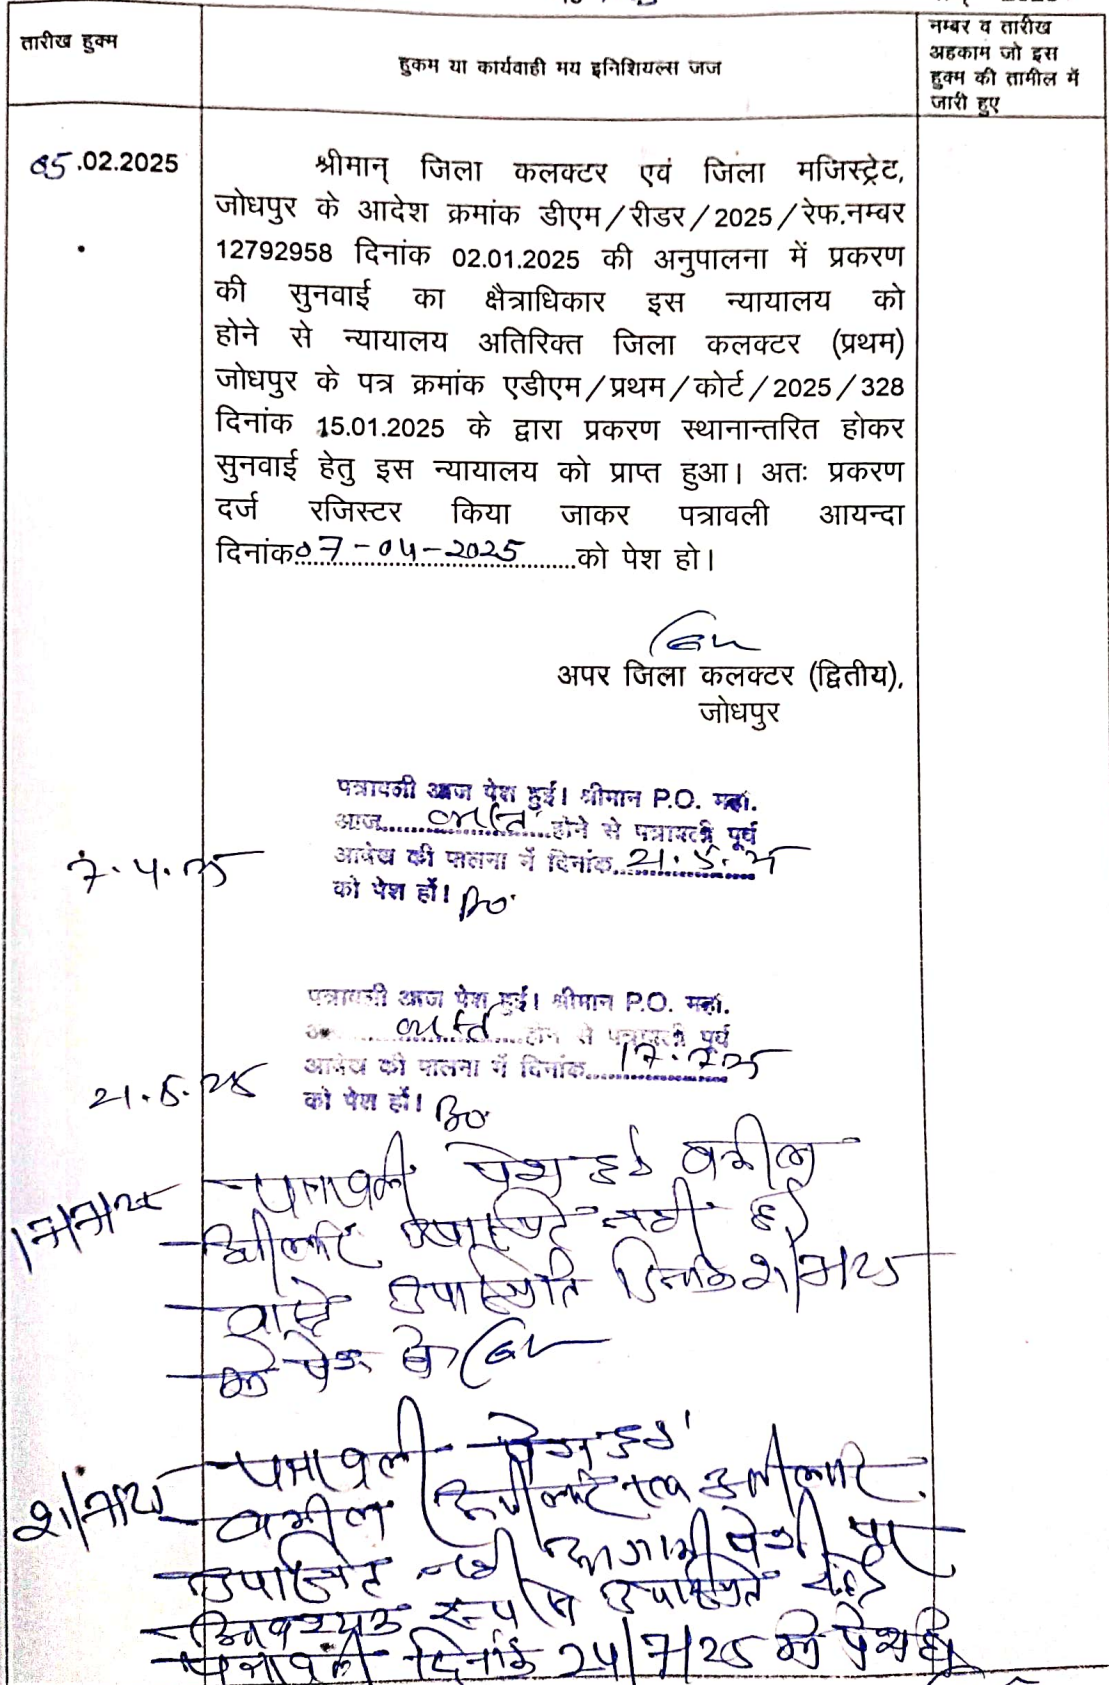 तारीख हुक्म
हुकम या कार्यवाही मय इनिशियल्स जज
नम्बर व तारीख
अहकाम जो इस
हुक्म की तामील में
जारी हुए
05.02.2025
श्रीमान् जिला कलक्टर एवं जिला मजिस्ट्रेट,
जोधपुर के आदेश क्रमांक डीएम/रीडर/2025/रेफ.नम्बर
12792958 दिनांक 02.01.2025 की अनुपालना में प्रकरण
की सुनवाई का क्षैत्राधिकार इस न्यायालय को
होने से न्यायालय अतिरिक्त जिला कलक्टर (प्रथम)
जोधपुर के पत्र क्रमांक एडीएम/प्रथम/कोर्ट/2025/328
दिनांक 15.01.2025 के द्वारा प्रकरण स्थानान्तरित होकर
सुनवाई हेतु इस न्यायालय को प्राप्त हुआ। अतः प्रकरण
दर्ज रजिस्टर किया जाकर पत्रावली आयन्दा
दिनांक 07-04-2025 को पेश हो।
अपर जिला कलक्टर (द्वितीय),
जोधपुर
पत्रावली आज पेश हुई। श्रीमान P.O. महो.
आज व्यस्त होने से पत्रावली पूर्व
7.4.25
आदेश की पालना में दिनांक 21.5.25
को पेश हों।
पत्रावली आज पेश हुई। श्रीमान P.O. महो.
व्यस्त होने से पत्रावली पूर्व
21.5.25
आदेश की पालना में दिनांक 17.7.25
को पेश हों।
17/7/25
पत्रावली पेश हुई वकील
अपीलांट उपस्थित नहीं है
वास्ते उपस्थिति दिनांक 21/7/25
को पेश हो
21/7/25
पत्रावली पेश हुई
वकील अपीलांट
उपस्थित नहीं आगामी पेशी पर
आवश्यक रूप से उपस्थित रहे
पत्रावली दिनांक 24/7/25 को पेश हो